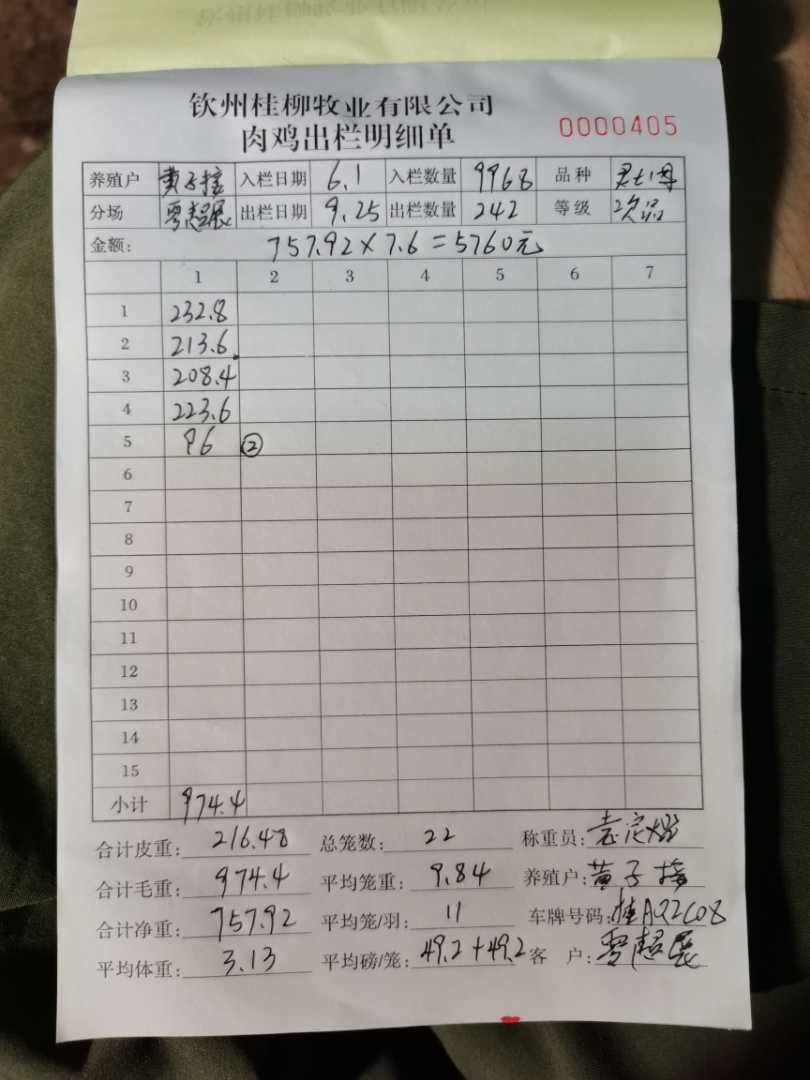 钦州桂柳牧业有限公司
肉鸡出栏明细单 0000405
养殖户 黄子 入栏日期 6.1 入栏数量 9968 品种
分场 零超展 出栏日期 9.25 出栏数量 242 等级 次品
金额: 757.92×7.6=5760元
1 2 3 4 5 6 7
1 232.8
2 213.6
3 208.4
4 223.6
5 96 ②
6
7
8
9
10
11
12
13
14
15
小计 974.4
合计皮重: 216.48 总笼数: 22 称重员:
合计毛重: 974.4 平均笼重: 9.84 养殖户: 黄子
合计净重: 757.92 平均笼/羽: 11 车牌号码: 桂AQ2C08
平均体重: 3.13 平均磅/笼: 49.2+49.2 客 户: 零超展